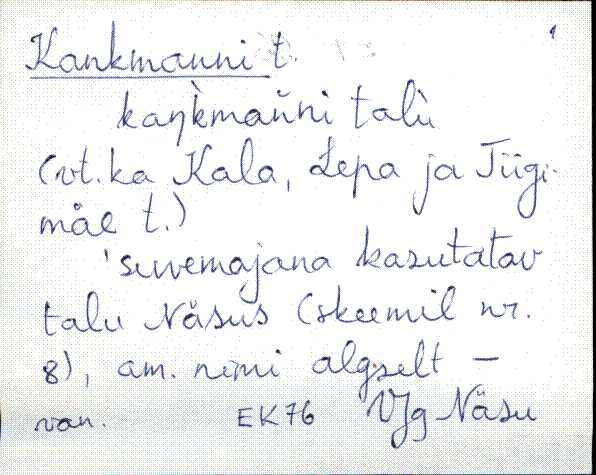 Kankmanni t. 1
kaŋ̀kmaǹni talù
(vt. ka Kala, Lepa ja Tiigi-
mäe t.)
'suvemajana kasutatav
talu Näsus (skeemil nr.
8), am. nimi algselt –
van. EK76 VJg Näsu